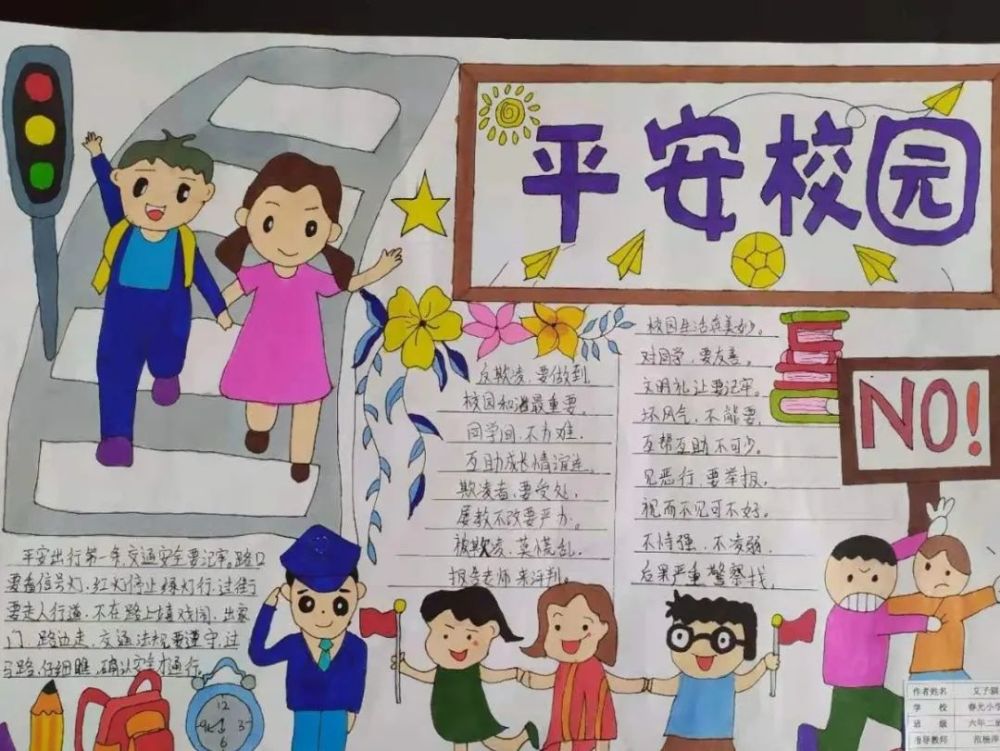 平安校园
反欺凌,要做到
校园和谐最重要。
同学间,不为难,
互助成长情谊连。
欺凌者,要受处,
屡教不改要严办。
被欺凌,莫慌乱,
报告老师来评判。
校园生活真美妙。
对同学,要友善。
文明礼让要记牢。
坏风气,不能要,
互帮互助不可少。
见恶行,要举报,
视而不见可不好。
不恃强,不凌弱,
后果严重警察找。
NO!
平安出行第一条,交通安全要记牢,路口
要看信号灯,红灯停止绿灯行,过街
要走人行道,不在路上嬉戏闹,出家
门,路边走,交通法规要遵守,过
马路,仔细瞧,确认安全才通行。
12
3
6
9
作者姓名 艾子
学 校 春光小学
班 级 六年二班
指导教师 范杨萍